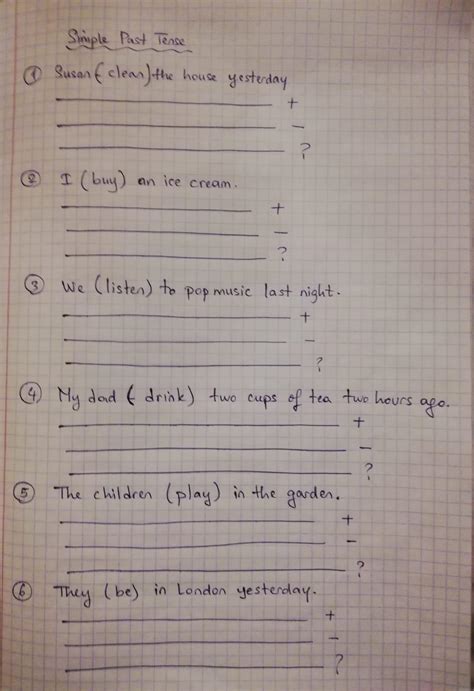 Simple Past Tense
① Susan (clean) the house yesterday
+
-
?
② I (buy) an ice cream.
+
-
?
③ We (listen) to pop music last night.
+
-
?
④ My dad (drink) two cups of tea two hours ago.
+
-
?
⑤ The children (play) in the garden.
+
-
?
⑥ They (be) in London yesterday.
+
-
?